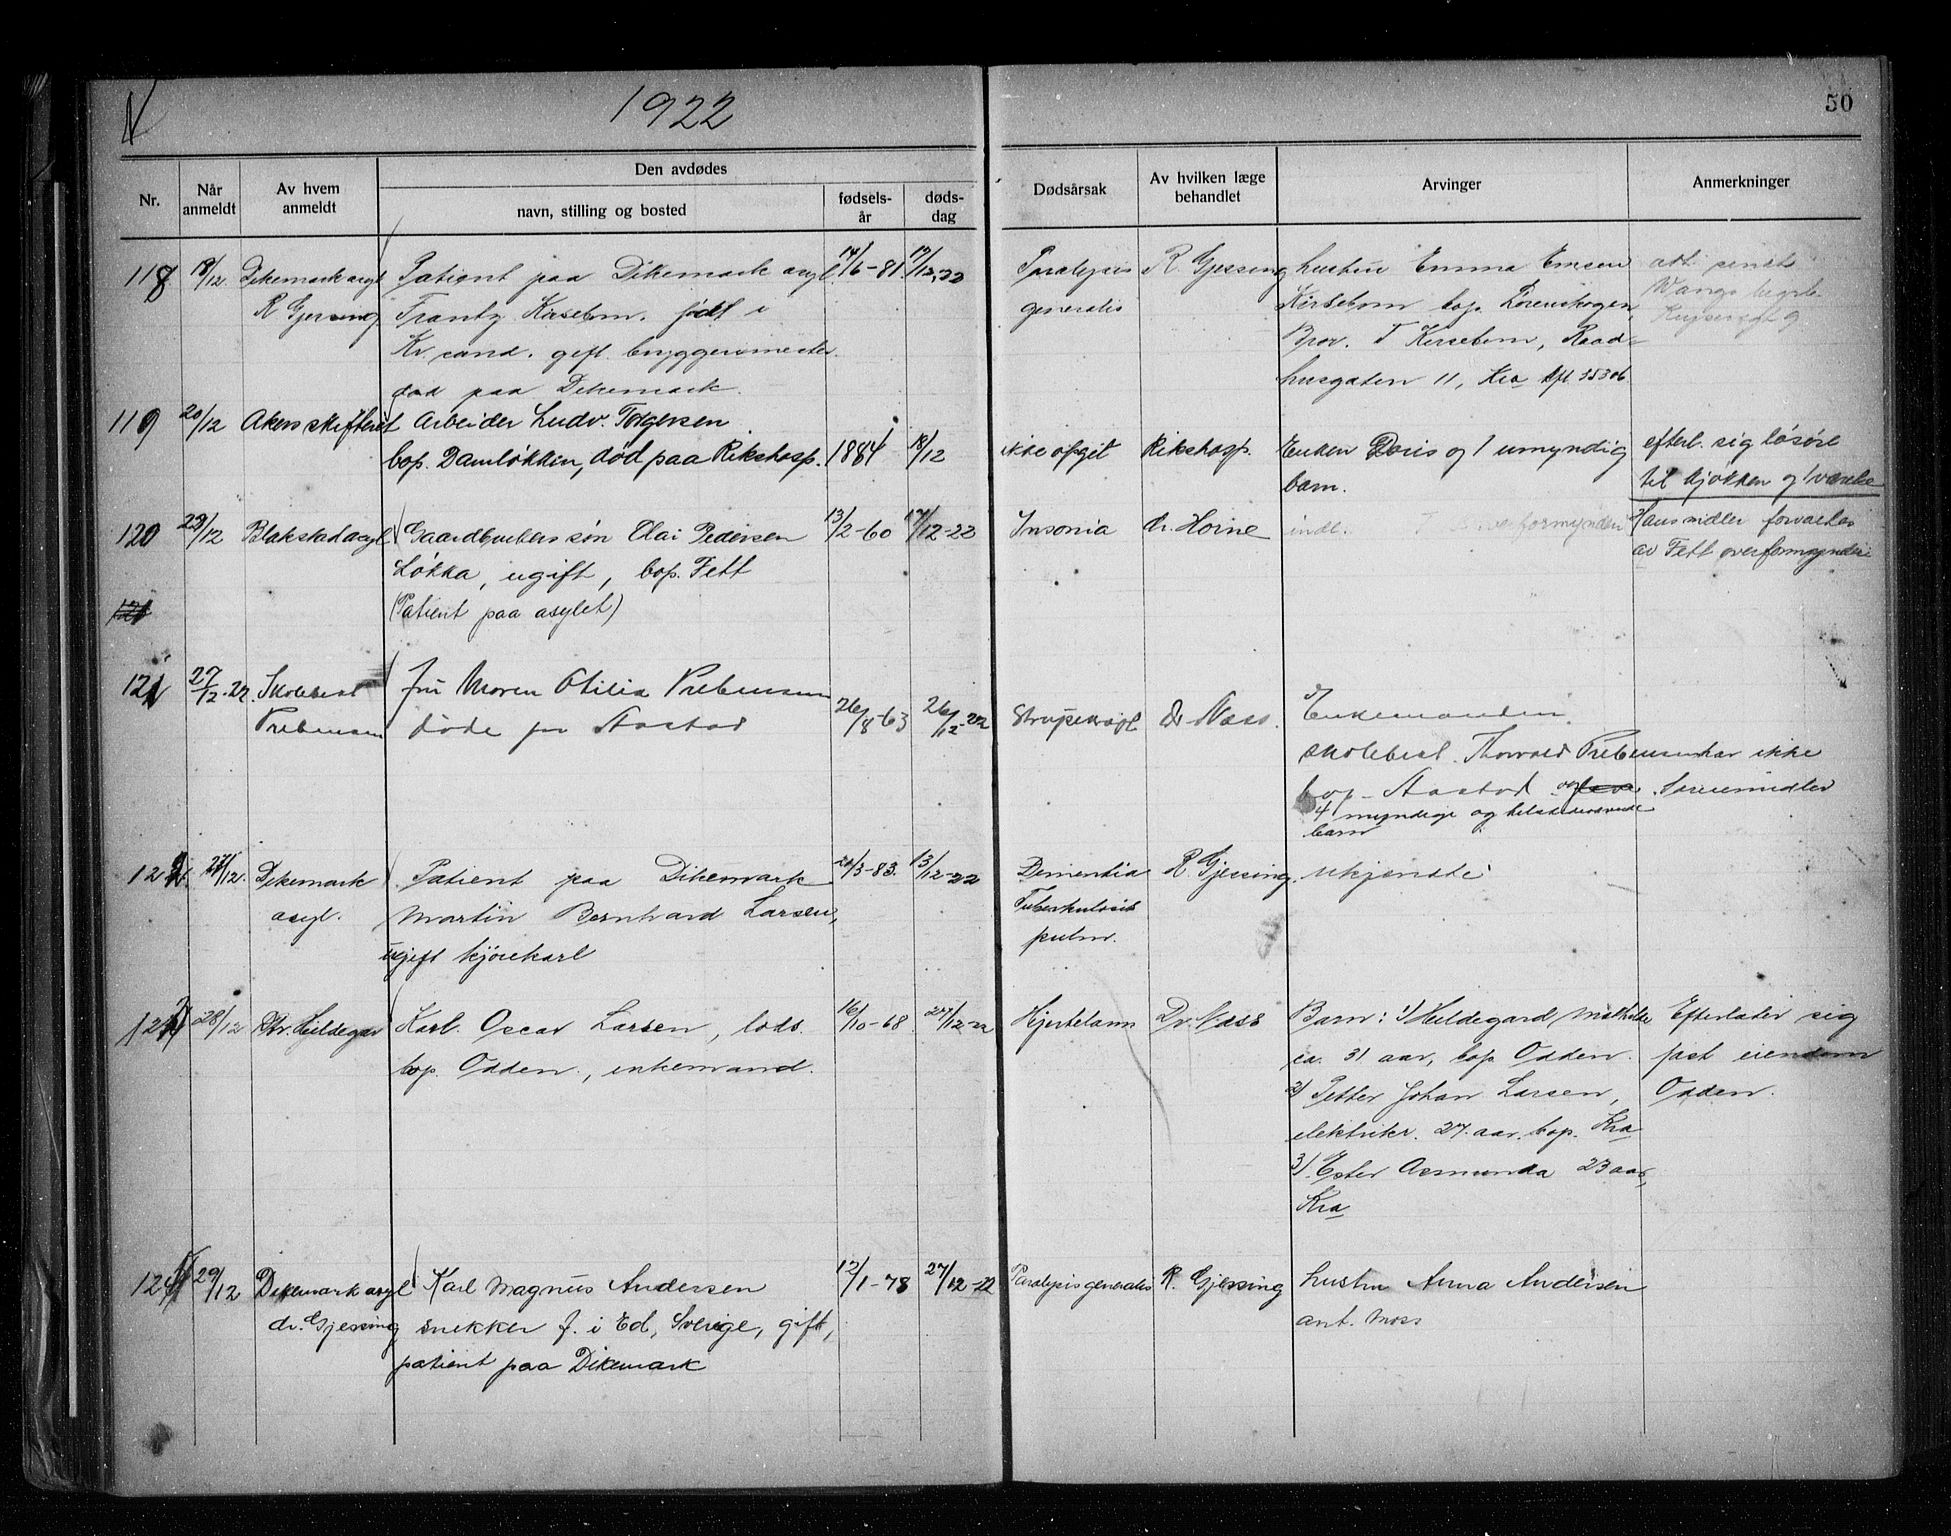 1922
50
Nr.
Når anmeldt
Av hvem anmeldt
Den avdødes
navn, stilling og bosted
fødsels-år
døds-dag
Dødsårsak
Av hvilken læge behandlet
Arvinger
Anmerkninger
118 18/12 Dikemark asyl Patient paa Dikemark asyl. 14/6-81 17/12-22 Paralysis R Gjessing hustru Emma Emsen
R Gjessing Frantz Kirsebom. født i generalis Kirsebom bop. Lørenskogen,
Kr.sand. gift. bryggermester Bror. T Kirsebom, Raad-
død paa Dikemark. husgaten 11, Kra tlf. 15306
119 20/12 Akers skifteret Arbeider Ludv. Torgersen
bop. Damløkken, død paa Rikshosp. 1884 18/12 Ikke opgit Rikshosp. Enken Doris og 1 umyndig efterl. sig løsøre
barn. til kjøkken og 1 værelse
120 22/12 Blakstad asyl Gaardbrukers søn Olai Pedersen 13/2-60 17/12-22 Insonia dr. Horne Hans midler forvaltes
Løkka, ugift, bop. Fett av Fett overformynderi
(Patient paa asylet)
121
121 27/12-22. Skolebest. Fru Maren Otilia Prebensen 26/8-63 26/12-22 Strupekræft Dr Næss. Enkemanden
Prebensen døde paa skolebest. Thorvald Prebensen har ikke
bop. og særmidler
4 myndige og tilstedeværende
barn
122 27/12. Dikemark Patient paa Dikemark 20/3-83. 13/12-22 Dementia R. Gjessing. ukjendte
asyl. Martin Bernhard Larsen, Tuberkulosis
ugift kjørekarl pulm.
123 28/12 Karl Oscar Larsen, lods. 16/10-68 24/12-22 Hjertelam Dr. Næss Barn: 1) Hildegard Mathilde Efterlater sig
bop. Odden, enkemand. ca. 31 aar, bop. Odden. fast eiendom
2) Petter Johan Larsen, Odden.
elektriker. 27 aar. bop. Kra
3) Ester Asmunda 23 aar,
Kra
124 29/12 Dikemark asyl Karl Magnus Andersen 12/1-78 27/12-22 Paralysis generalis R. Gjessing hustru Anna Andersen
dr. Gjessing snekker f. i Ed, Sverige, gift, ant. Moss
patient paa Dikemark